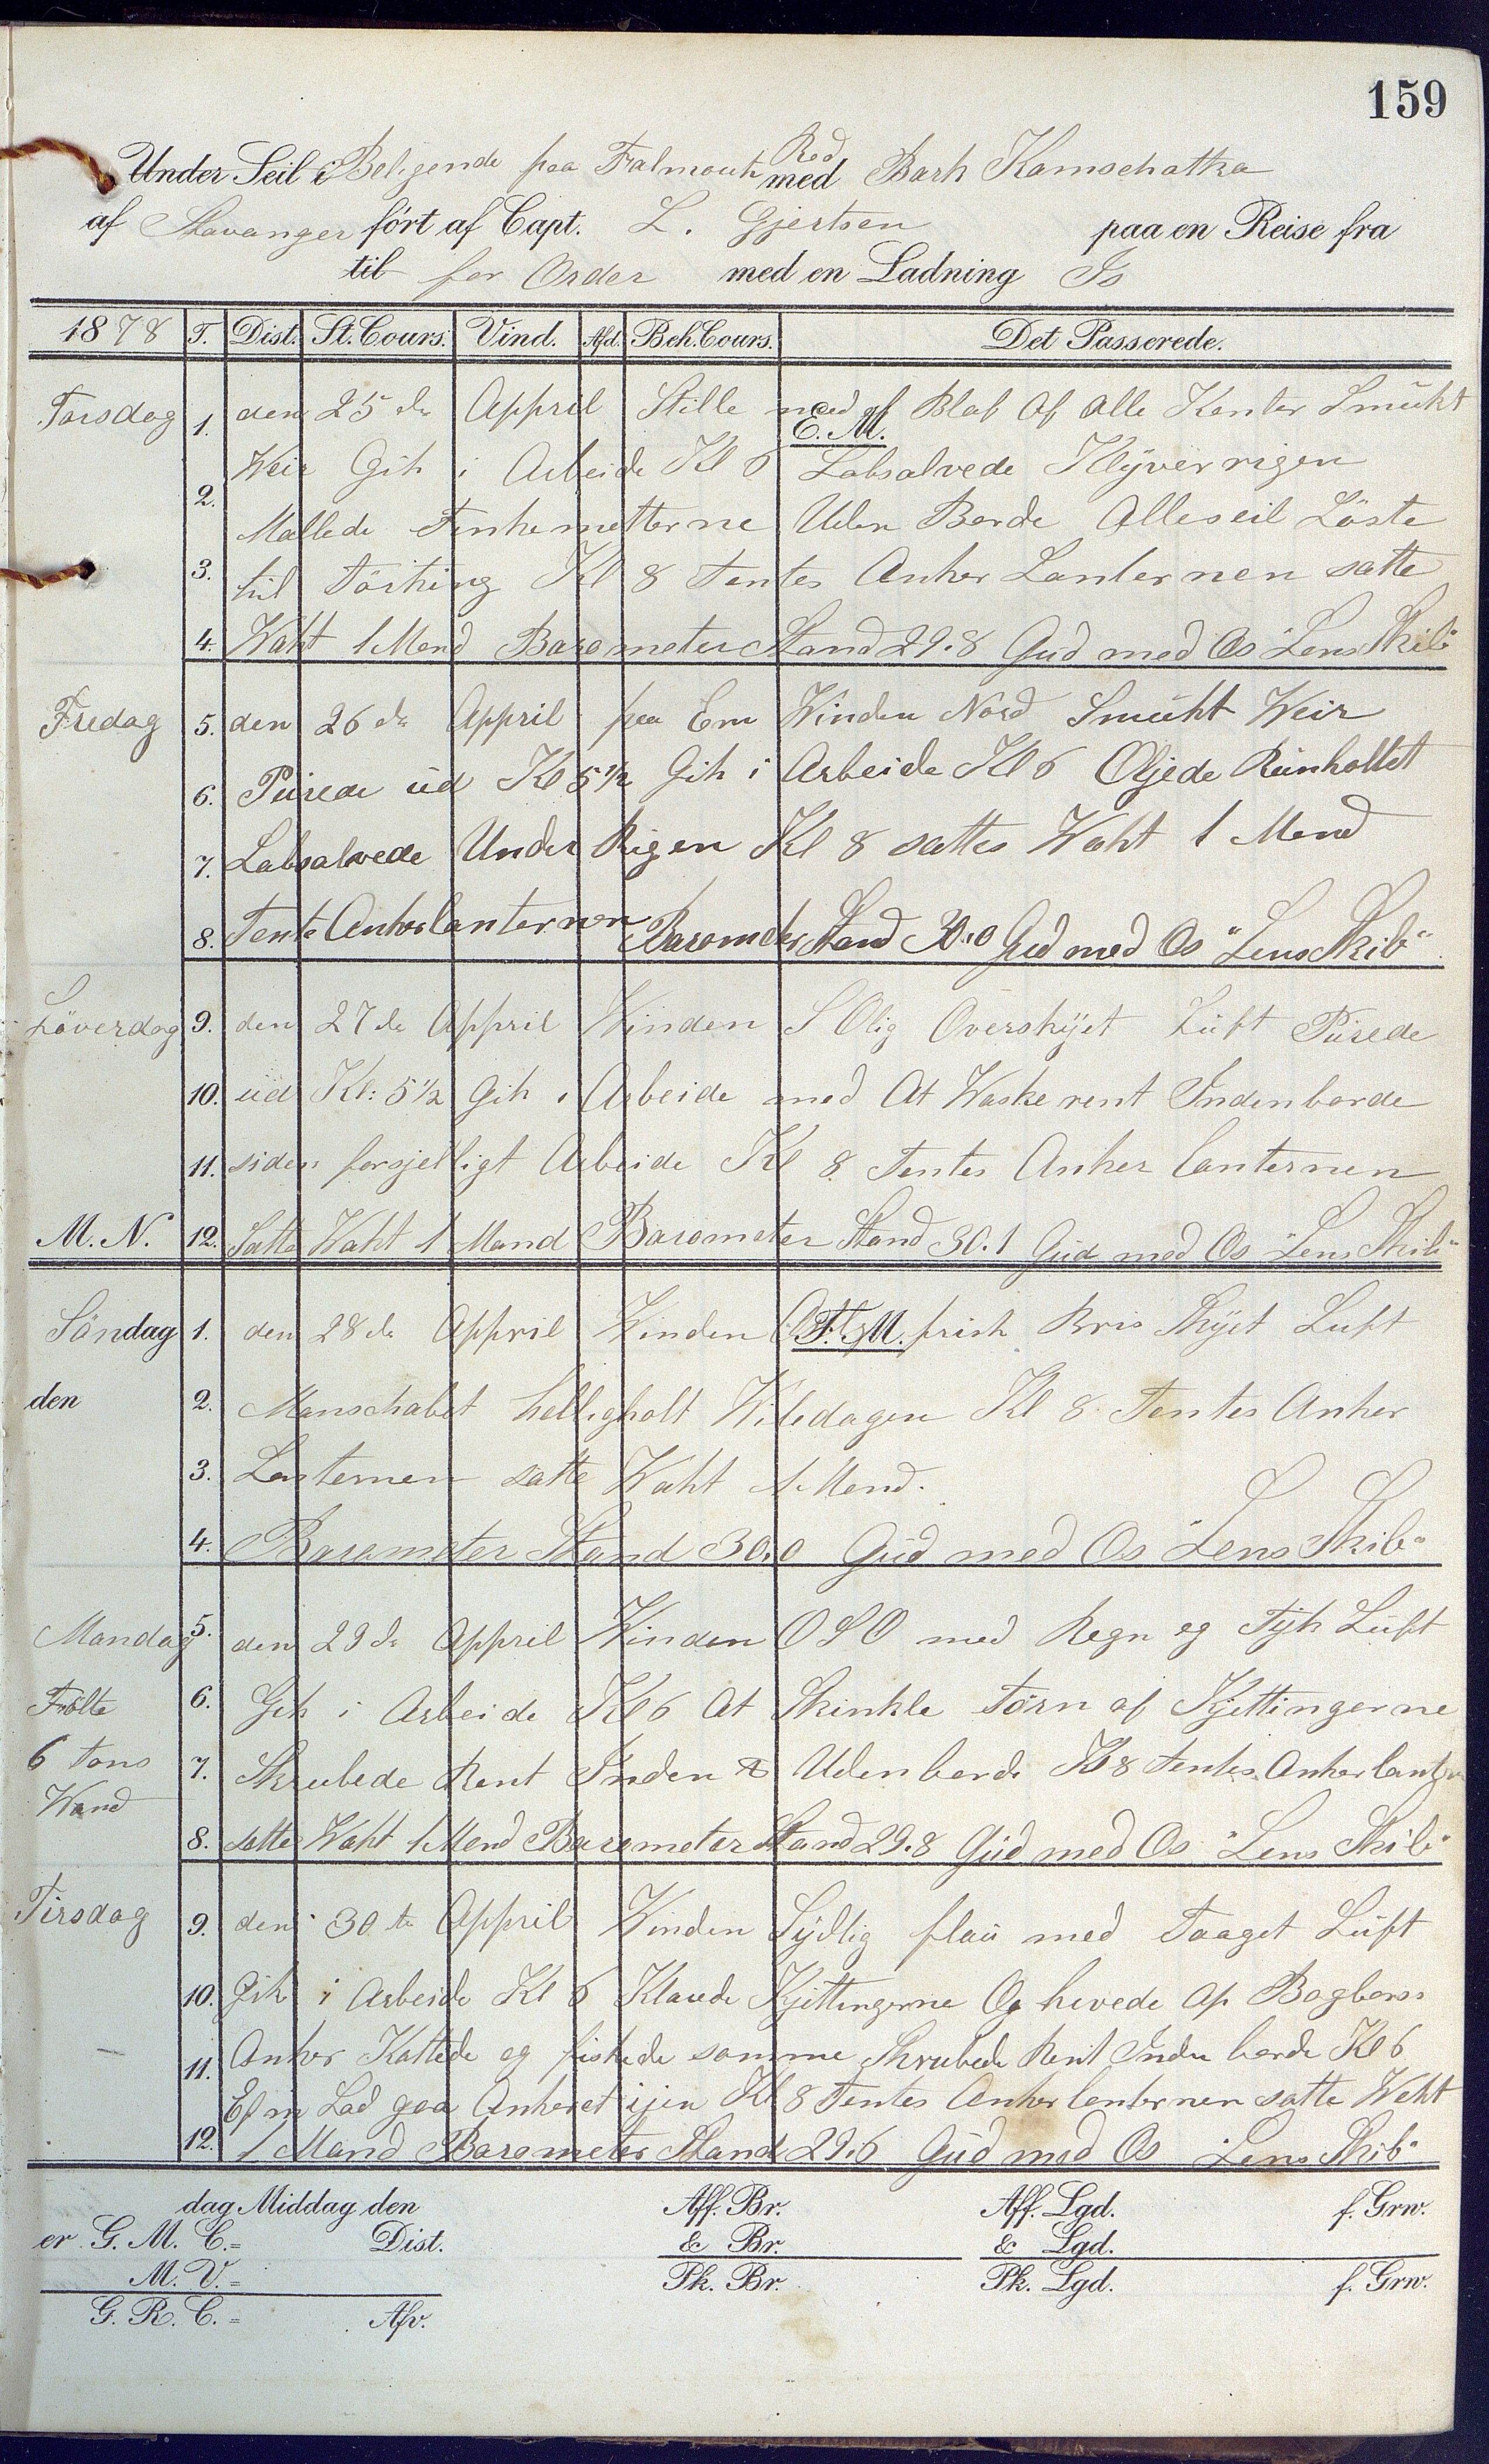 159
Under Seil i Beligende paa Falmouth Red med Bark Kamschatka
af Stavanger fört af Capt. L. Gjertsen paa en Reise fra
til for Order med en Ladning Is
1878 T. Dist. St. Cours. Vind. Afd. Beh. Cours. Det Passerede.
E. M.
Torsdag 1. den 25de Appril Stille med af Blaf Af Alle Kanter Smükt
2. Weir Gik i Arbeide Kl 6 Labsalvede Klÿverrigen
Mallede Finkenetterne Uden Borde Alleseil Löste
3. til Törking Kl 8 Tentes Anker Lanternen satte
4. Waht 1 Mand Barometer Stand 29.8 Gud med Os "Lens Skib"
Fredag 5. den 26de Appril paa Em Winden Nord Smükt Weir
6. Pürede üd Kl 5½ Gik i Arbeide Kl 6 Oljede Rünholtet
7. Labsalvede Under Rigen Kl 8 sattes Waht 1 Mand
8. Tente Ankerlanternen Barometer Stand 30.0 Gud med Os "Lens Skib"
Löverdag 9. den 27de Appril Winden S Olig Overskÿet Lüft Pürede
10. üd Kl: 5½ Gik i Arbeide med At Waske rent Indenborde
11. siden forsjelligt Arbeide Kl 8 Tentes Anker lanternen
M. N. 12. Satte Waht 1 Mand Barometer Stand 30.1 Güd med Os "Lens Skib"
F. M.
Söndag 1. den 28de Appril Winden frisk Bris Skÿet Luft
den 2. Manschabet helligholt Wiledagen Kl 8 Tentes Anker
3. Lanternen satte Waht 1 Mand.
4. Barometer Stand 30.0 Güd med Os "Lens Skib"
Mandag 5. den 29de Appril Winden O S O med Regn og Tÿk Lüft
Fölte 6. Gik i Arbeide Kl 6 At Skinkle Törn af Kjettingerne
6 Tons 7. Skrubede Rent Inden & Uden borde Kl 8 Tentes Ankerlantern
Wand
8. satte Waht 1 Mand Barometer Stand 29.8 Güd med Os "Lens Skib"
Tirsdag 9. den 30te Appril Winden Sÿdlig flaü med Taaget Lüft
10. Gik i Arbeide Kl 6 Klarede Kjettingerne Og hevede Op Bagbors
11. Anker Kattede og fiskede samme Skrubede Rent Inden borde Kl 6
Efm Lad gaa Ankeret ijen Kl 8 Tentes Anker lanternen satte Waht
12. 1 Mand Barometer Stand 29.6 Güd med Os Lens Skib"
dag Middag den Aff. Br. Aff. Lgd. f. Grw.
er G. M. C.= Dist. & Br. & Lgd.
M. V.= Pk. Br. Pk. Lgd. f. Grw.
G. R. C.= Afv.